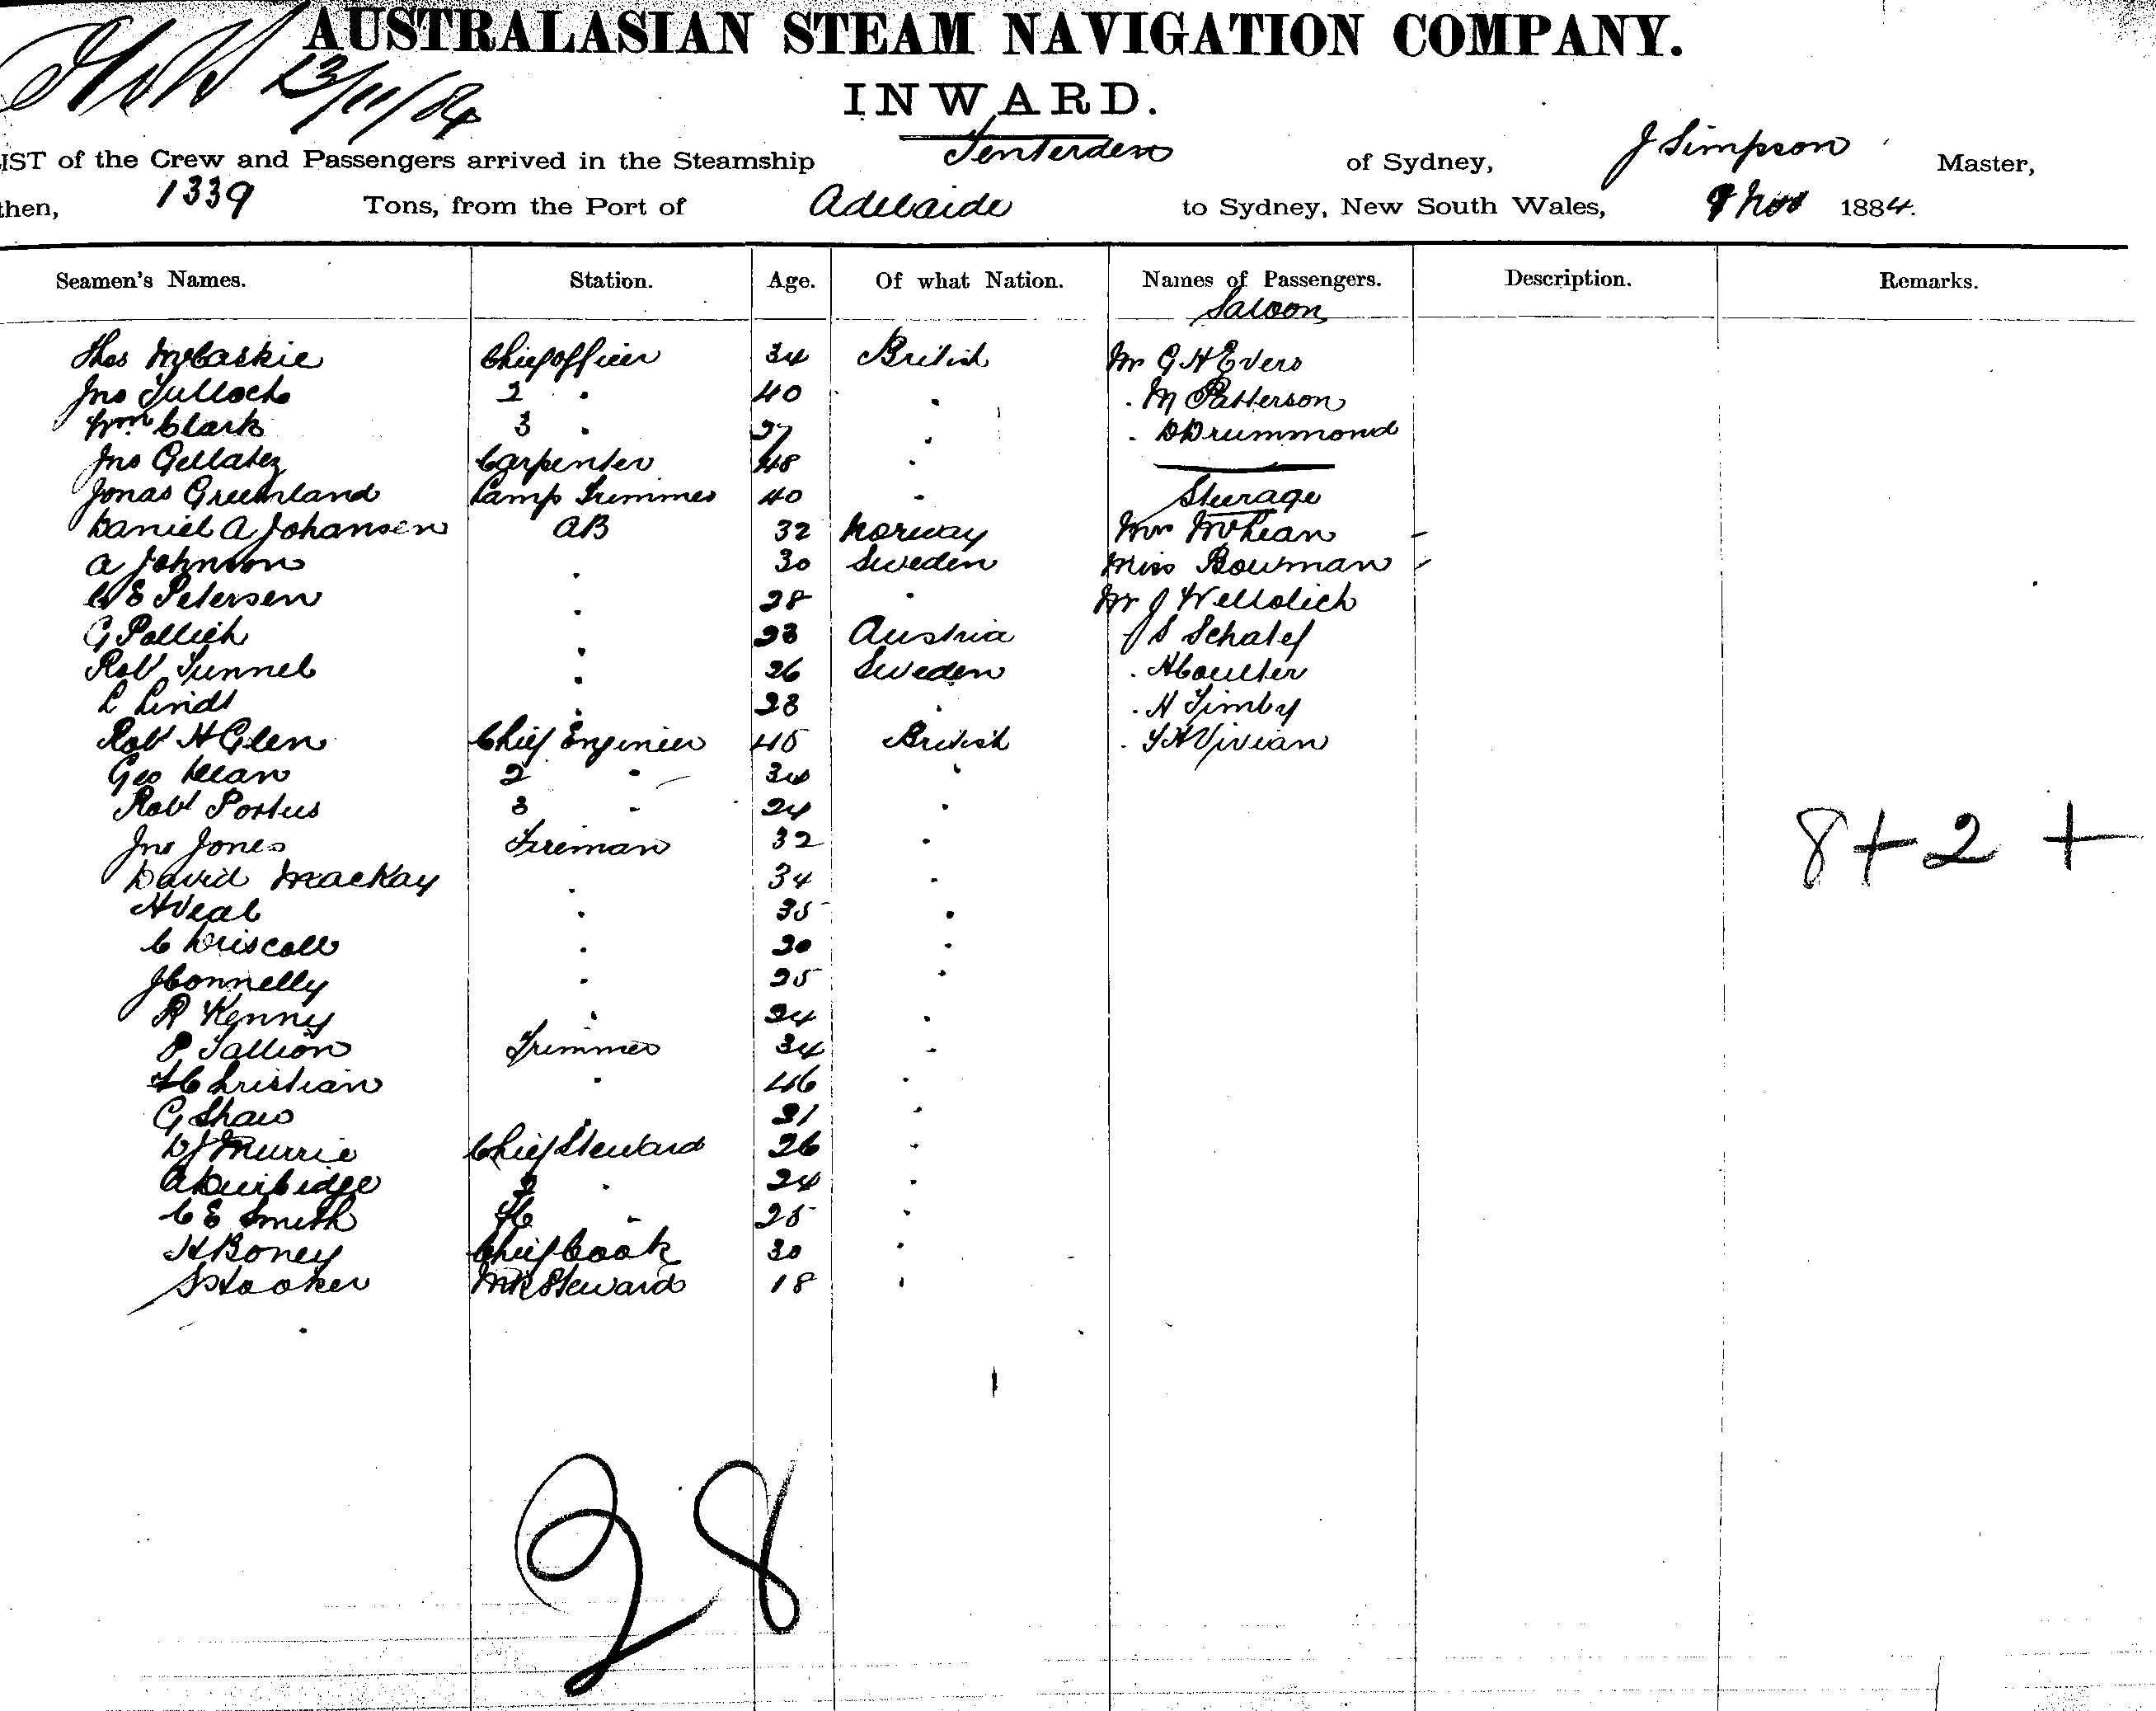 13/11/84
AUSTRALASIAN STEAM NAVIGATION COMPANY.
INWARD.
IST of the Crew and Passengers arrived in the Steamship Tenterden of Sydney, J Simpson Master,
then, 1339 Tons, from the Port of Adelaide to Sydney, New South Wales, 9 Nov 1884.
Seamen's Names. Station. Age. Of what Nation. Names of Passengers. Description. Remarks.
Saloon
Thos McCaskie Chief officer 34 British Mr G H Evers
Jno Tulloch 2 . 40 . . M Patterson
Wm Clark 3 . 27 . . D Drummond
Jno Gellatly Carpenter 48 .
Jonas Greenland Lamp Trimmer 40 . Steerage
Daniel A Johansen AB 32 Norway Mrs McLean -
A Johnson . 30 Sweden Miss Bowman -
C E Petersen . 28 . Mr J Wellolich
G Pollich . 23 Austria S Schalef
Robt Tunnel . 26 Sweden . H Coulter
L Lindt . 28 . . H Timby
Robt H Glen Chief Engineer 45 British . Vivian
Geo Mean 2 - 34 .
Robt Portus 3 - 24 .
Jno Jones Fireman 32 .
8 + 2 +
David MacKay . 34 .
H Veal . 35 .
C Driscoll . 30 .
J Connelly . 25 .
R Kenny . 24 .
P Tallion Trimmer 34 .
H Christian . 46 .
G Shaw . 21 .
D J Murrie Chief Steward 26 .
A Durbidge 2 . 24 .
C E Smith FC - 25 .
H Boney Chief Cook 30 .
S Hooker MR Steward 18 .
28